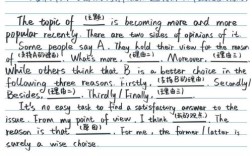 The topic of (主题) is becoming more and more
popular recently. There are two sides of opinions of it.
Some people say A. They hold their view for the reason
of (支持A的理由) What's more, (理由二) Moreover, (理由三)
While others think that B is a better choice in the
following three reasons. Firstly, (支持B的理由) Secondly/
Besides, (理由二) Thirdly/Finally, (理由三)
It's no easy task to find a satisfactory answer to the
issue. From my point of view, I think (我的观点) The
reason is that (原因) For me, the former/latter is
surely a wise choice.